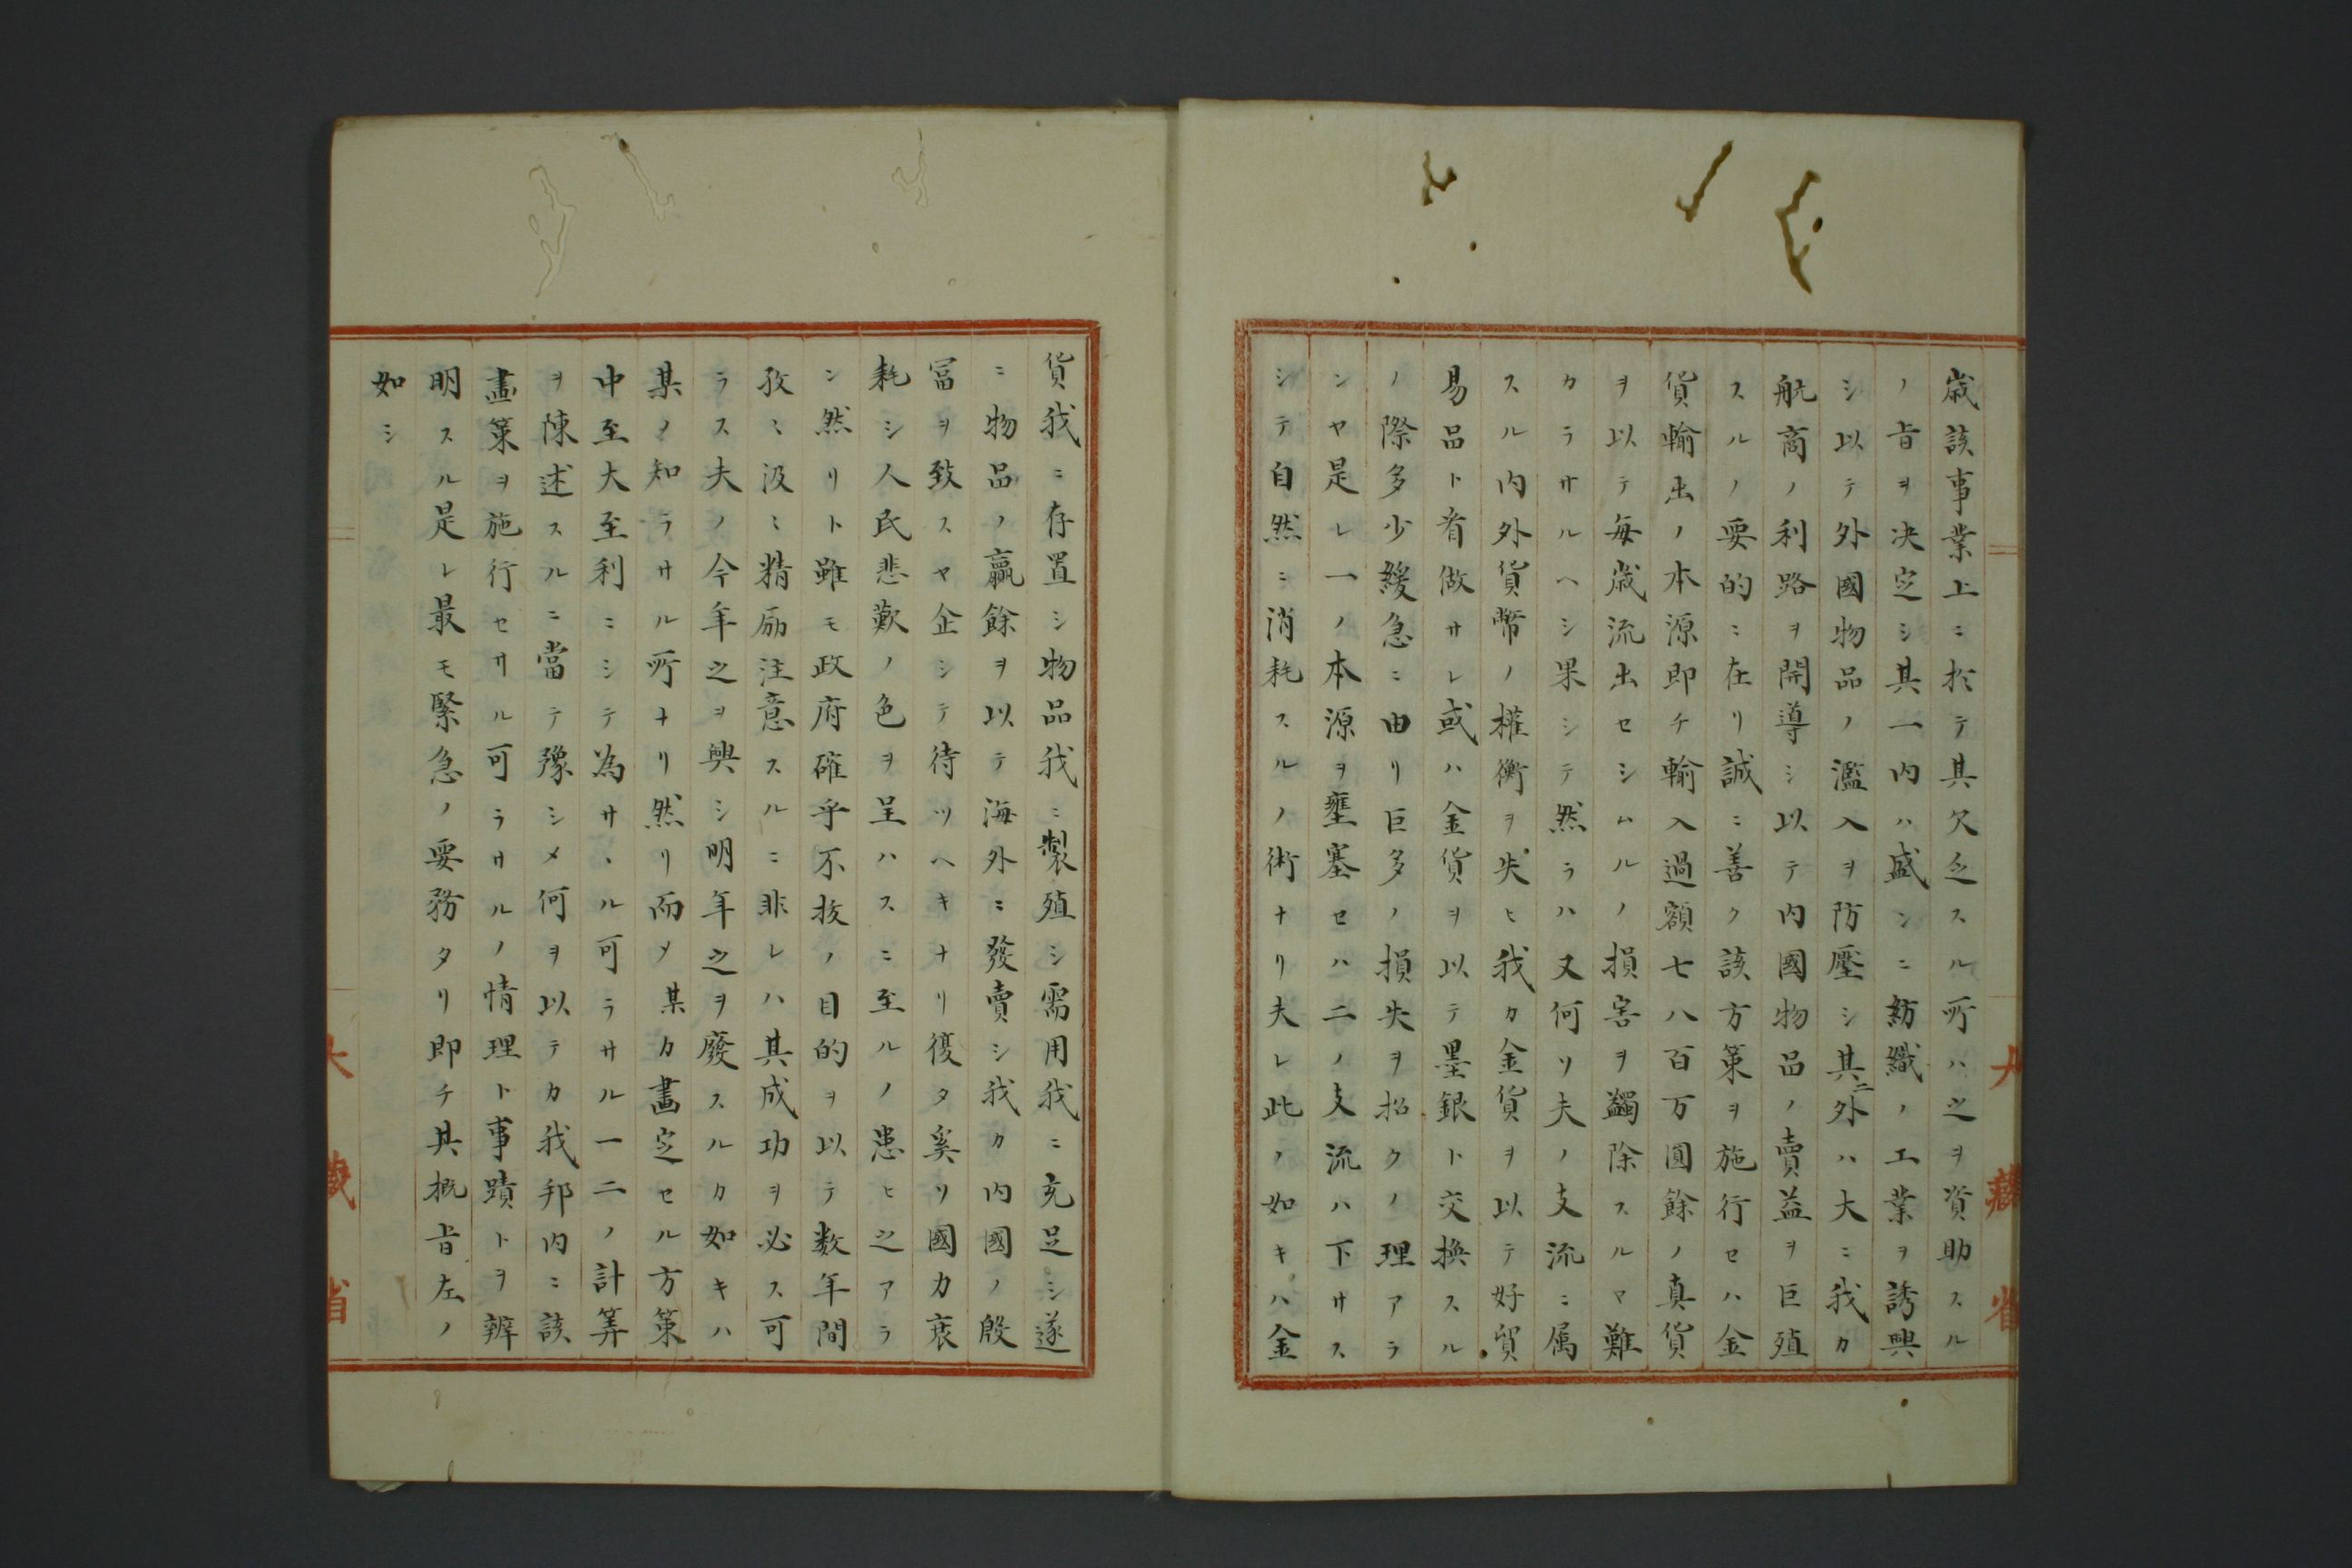 歳該事業上ニ於テ其欠乏スル所ハ之ヲ資助スル
ノ旨ヲ决定シ其一内ハ盛ンニ紡織ノ工業ヲ誘興
シ以テ外國物品ノ濫入ヲ防壓シ其二外ハ大ニ我カ
航商ノ利路ヲ開導シ以テ内國物品ノ賣益ヲ巨殖
スルノ要的ニ在リ誠ニ善ク該方策ヲ施行セハ金
貨輸出ノ本源即チ輸入過額七八百万圓餘ノ真貨
ヲ以テ毎歳流出セシムルノ損害ヲ蠲除スルマ難
カラサルヘシ果シテ然ラハ又何ソ夫ノ支流ニ属
スル内外貨幣ノ權衡ヲ失ヒ我カ金貨ヲ以テ好貿
易品ト看做サレ或ハ金貨ヲ以テ墨銀ト交換スル
ノ際多少緩急ニ由リ巨多ノ損失ヲ招クノ理アラ
ンヤ是レ一ノ本源ヲ壅塞セハ二ノ支流ハ下サス
シテ自然ニ消耗スルノ術ナリ夫レ此ノ如キハ金
貨我ニ存置シ物品我ニ製殖シ需用我ニ充足シ遂
ニ物品ノ贏餘ヲ以テ海外ニ發賣シ我カ内國ノ殷
冨ヲ致スヤ企シテ待ツヘキナリ復タ奚ソ國力衰
耗シ人民悲歎ノ色ヲ呈ハスニ至ルノ患ヒ之アラ
ン然リト雖モ政府確乎不抜ノ目的ヲ以テ数年間
孜〻汲〻精励注意スルニ非レハ其成功ヲ必ス可
ラス夫ノ今年之ヲ興シ明年之ヲ廢スルカ如キハ
某ノ知ラサル所ナリ然リ而メ某カ畫定セル方策
中至大至利ニシテ為サヽル可ラサル一二ノ計筭
ヲ陳述スルニ當テ豫シメ何ヲ以テカ我邦内ニ該
畫策ヲ施行セサル可ラサルノ情理ト事蹟トヲ辨
明スル是レ最モ緊急ノ要務タリ即チ其概旨左ノ
如シ
大藏省